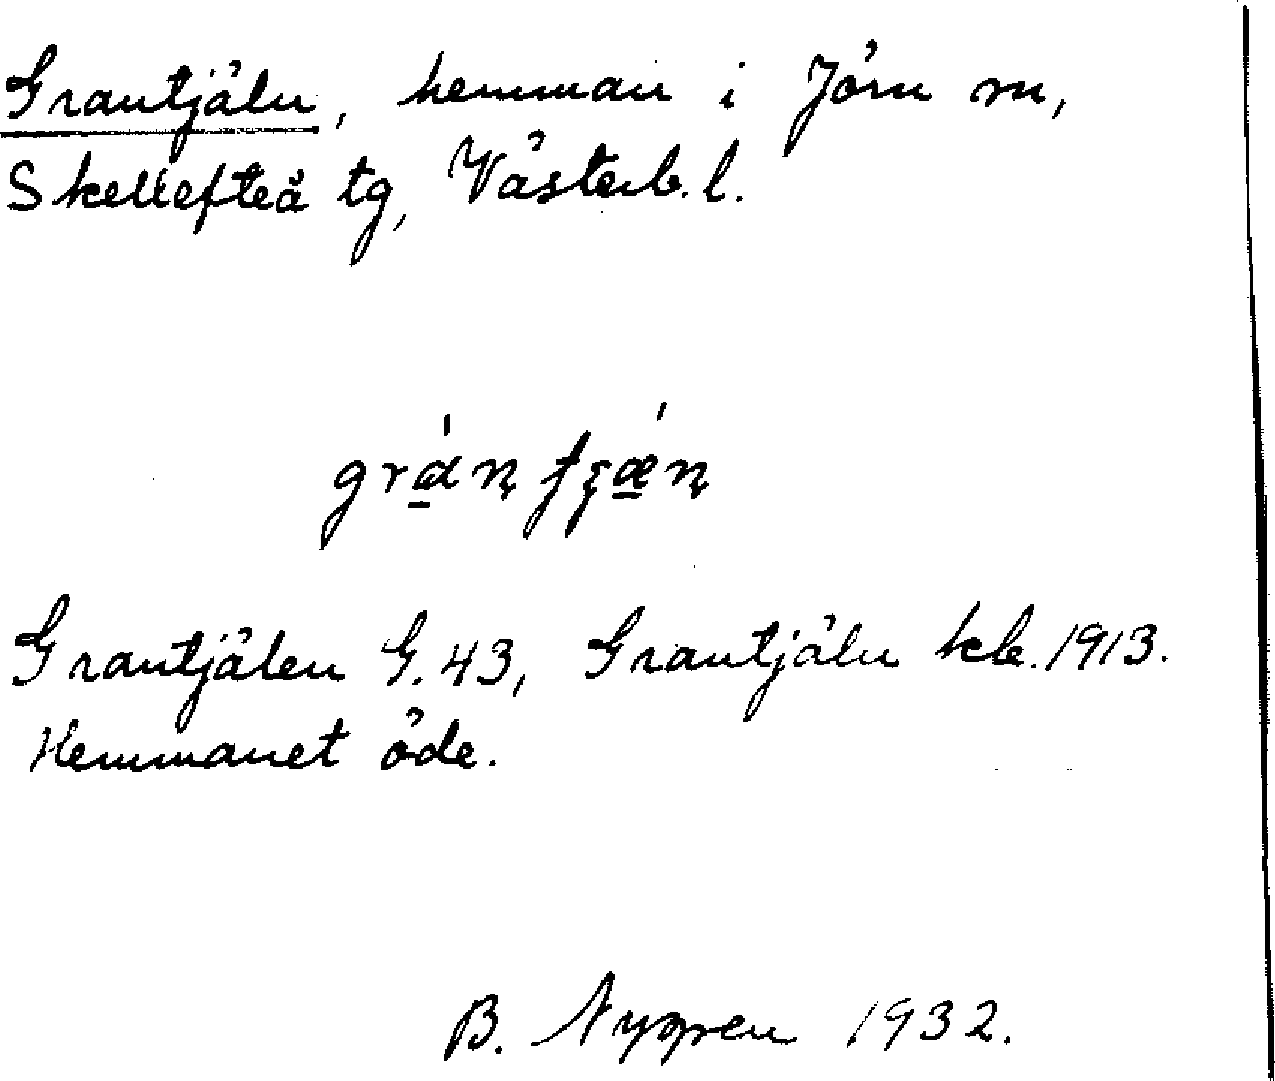 Grantjäln, hemman i Jörn sn,
Skellefteå tg, Västerb. l.
Grantjälen G. 43, Grantjäln kb. 1913.
Hemmanet öde.
B. Nygren 1932.